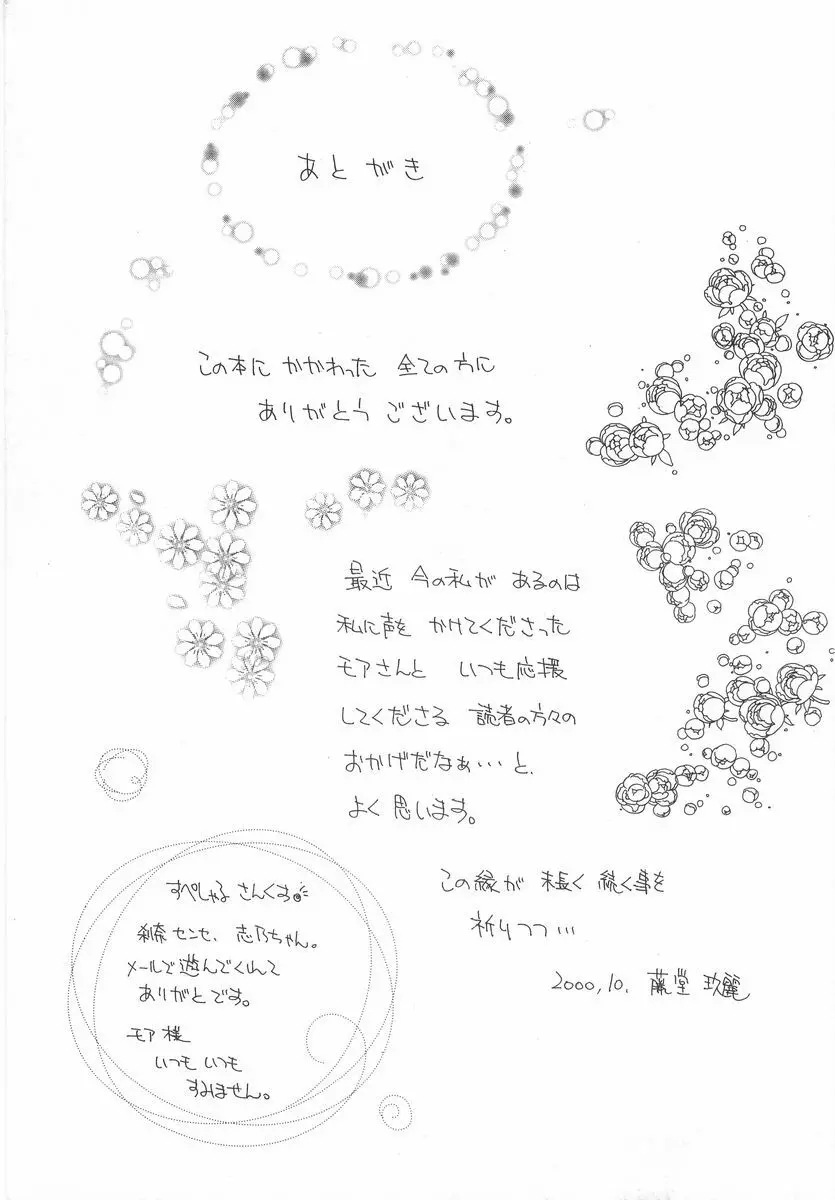 あとがき
この本に かかわった 全ての方に
ありがとう ございます。
最近 今の私が あるのは
私に声を かけてくださった
モアさんと いつも応援
してくださる 読者の方々の
おかげだなぁ・・・と、
よく思います。
この縁が 末長く 続く事を
祈りつつ…
2000,10. 藤堂 玖麗
すぺしゃる さんくす
センセ、志乃ちゃん。
メールで遊んでくれて
ありがとです。
モア様
いつもいつも
すみません。